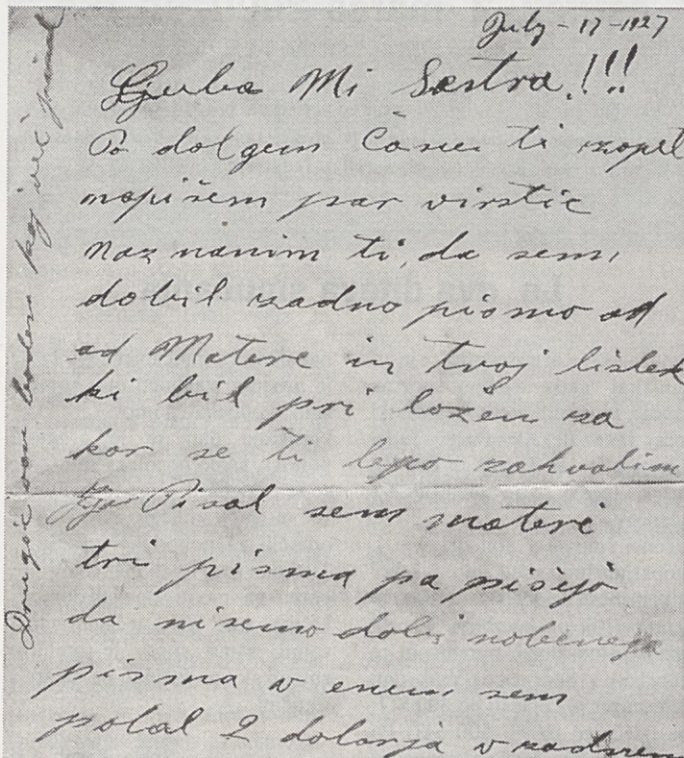 July - 17 - 1927
Ljuba Mi Sestra!!!
Po dolgem Časue ti zopet
napišem par virstic
naznanim ti, da sem,
dobil zadno pismo od
od Matere in tvoj listek
ki bil pri ložen za
kar se ti lepo zahvalim
Pisal sem materi
tri pisma pa pišejo
da nisemo dobi nobenega
pisma v enem sem
polal 2 dolarja v zadnem
Drugič vam bodem kaj več pisal